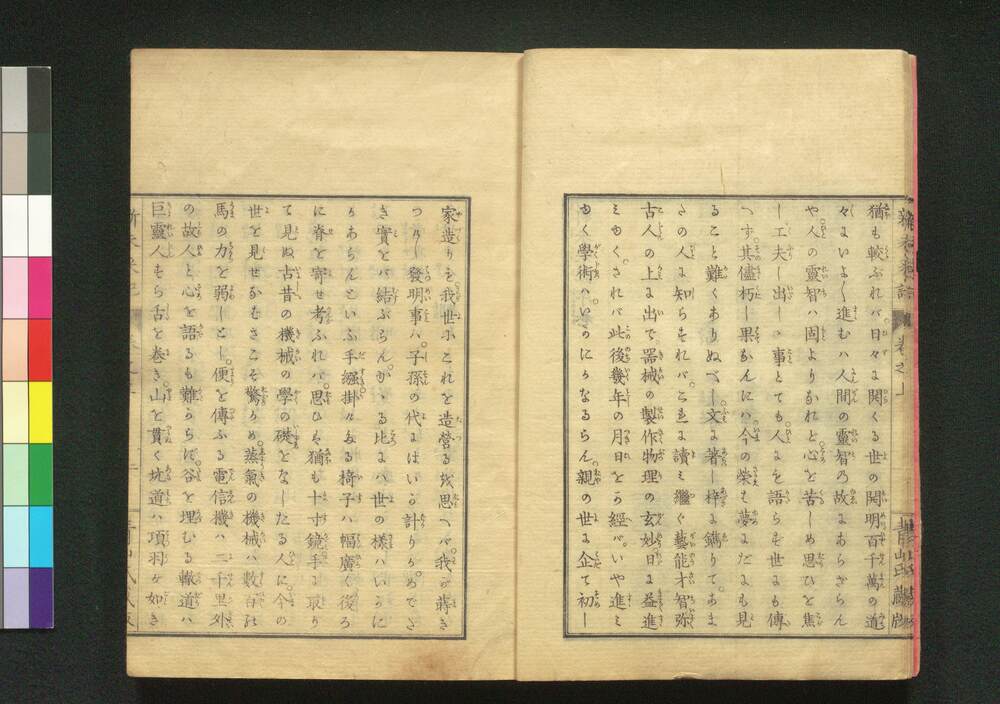 猶も較ぶれバ日々に開くる世の開明百千萬の道
々にいよ〱進むハ人間の靈智の故にあらざらん
や。人の靈智ハ固よりなれど心を苦しめ思ひを焦
し工夫し出しゝ事とても。人に語らず世にも傳
へず。其儘朽し果なんにハ。今の榮も夢にだにも見
ること難くありぬべし。文に著し梓に鐫りて。あま
たの人に知らすれバ。これに讀ミ繼ぐ藝能才智弥
古人の上に出で器械の製作物理の玄妙日に益進
ミゆく。されバ此後幾年の月日をか經バ。いや進ミ
ゆく學術ハ。いかにかなるらん。親の世に企て初し
家造りを我世にこれを造營るを思へバ。我が蒔き
つけし發明事ハ。子孫の代にはいか計りかめでた
き實をバ結ぶらん。かゝる比にハ世の樣ハいかに
かあらんといふ手綴掛けたる椅子ハ幅廣く後ろ
に脊を寄せ考ふれバ。思ひや猶も十寸鏡手に取り
て見ぬ古昔の機械の學の礎となしたる人に。今の
世を見せなむさこそ驚かめ。蒸氣の機械ハ數百の
馬の力を弱しとし。便を傳ふる電信機ハ二千里外
の故人と心を語るも難からず。谷を埋むる轍道ハ
巨靈人をら舌を卷き。山を貫く坑道ハ項羽が如き
卷之上